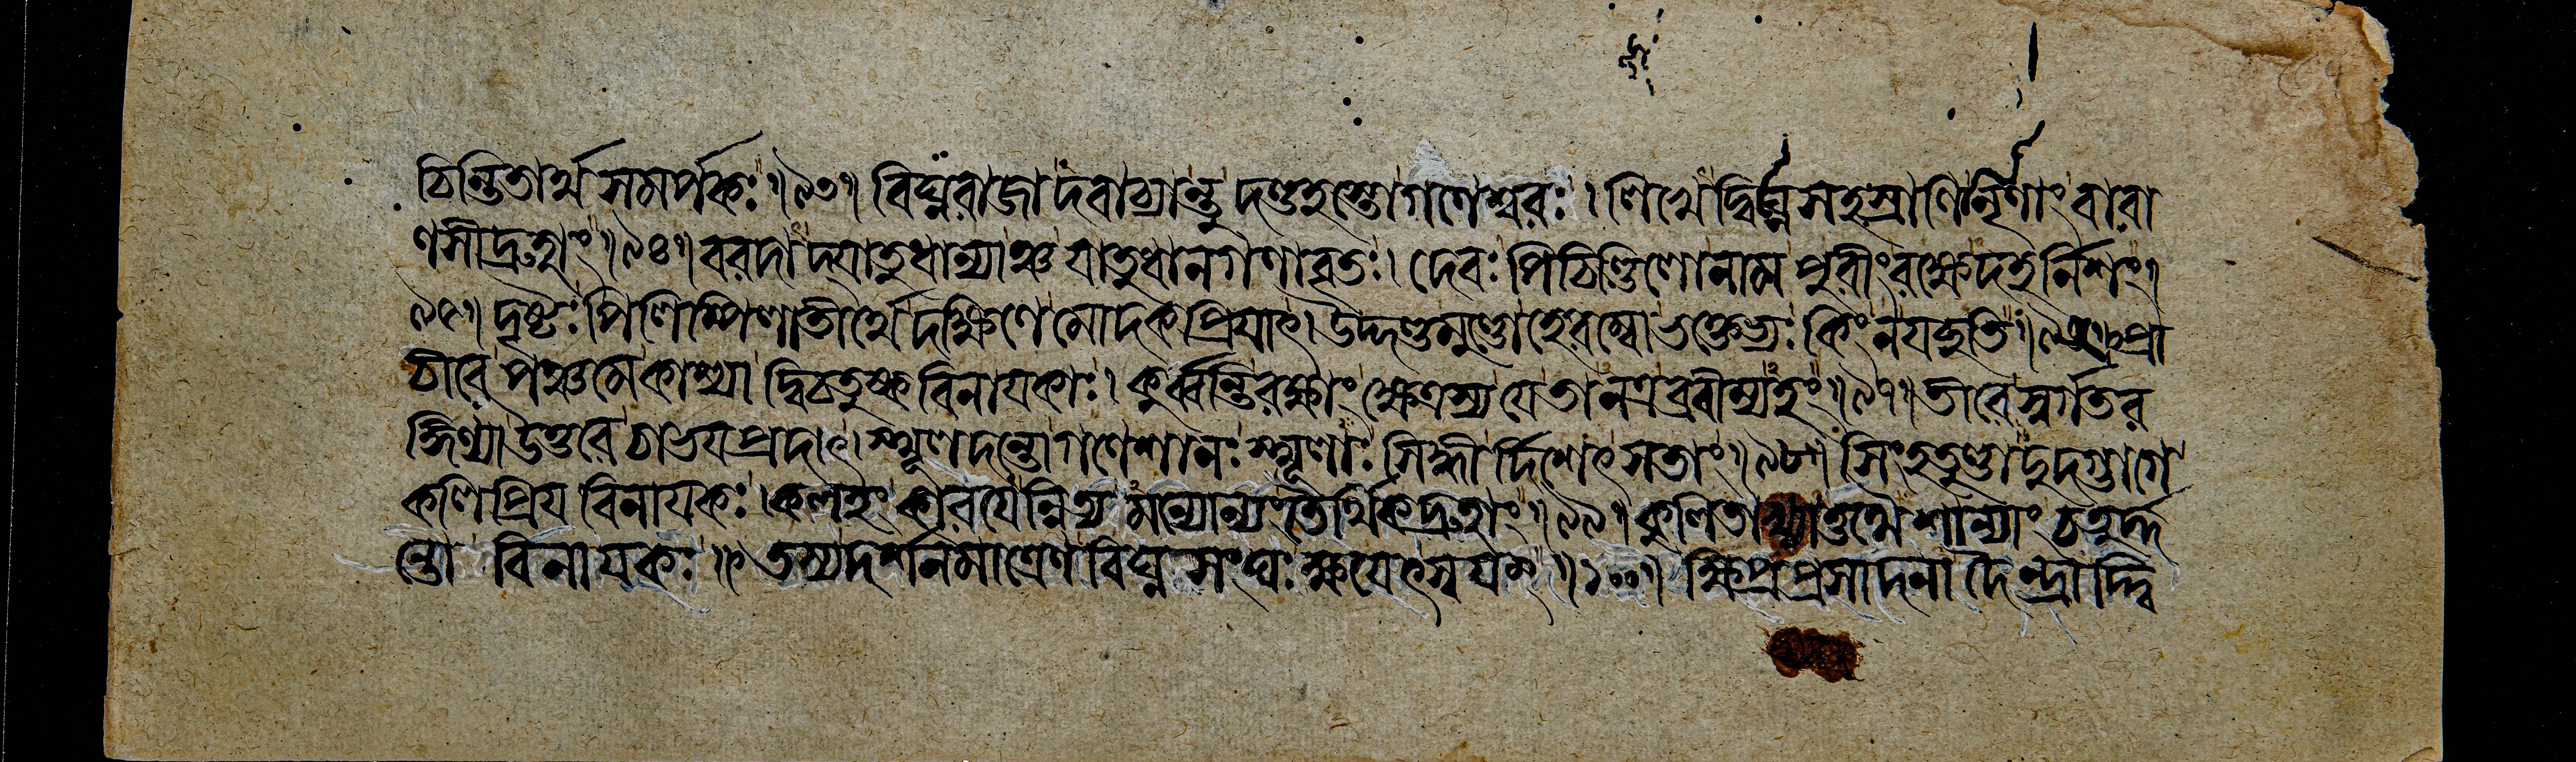 চিন্তিতার্থসমর্পকঃ ॥৯৩॥ বিঘ্নরাজাদবাচ্যান্তু দণ্ডহস্তোগণেশ্বরঃ । লিখেদ্বিঘ্নসহস্রাণিনৃণাংবারা
ণসীদ্রুহাং॥৯৪॥ বরদাদ্যাতুধান্যাঞ্চ যাতুধানগণাবৃতঃ। দেবঃ পিচিণ্ডিলোনাম পুরীংরক্ষেদহর্নিশং॥
৯৫॥ দৃষ্টঃপিলিপ্পিলাতীর্থে দক্ষিণেমোদকপ্রিয়াৎ। উদ্দণ্ডমুণ্ডোহেরম্বোভক্তেভ্যঃ কিংনযচ্ছতি॥৯৬॥ প্রা
চীরে পঞ্চমেকাশ্যা দ্বিচতুষ্কবিনাযকাঃ। কুর্ব্বন্তিরক্ষাং ক্ষেত্রস্যযেতানত্রব্রবীম্যহং॥৯৭॥ তীরেস্বর্গতর
ঙ্গিণ্যা উত্তরেচাভযপ্রদাৎ। স্থূলদন্তোগণেশানঃ স্থূলাঃ সিদ্ধীর্দিশেৎসতাং॥৯৮॥ সিংহতুণ্ডাদুদগ্ভাগে
কলিপ্রিয বিনাযকঃ। কলহং কারযেন্নিত্যমন্যোন্যংতীর্থিকদ্রুহাং॥৯৯॥ কূণিতাক্ষাত্তথৈশান্যাং চতুর্দ্দ
ন্তো বিনাযকঃ ॥ তস্যদর্শনমাত্রেণ বিঘ্নসংঘঃক্ষযেৎস্বযম্ ॥১০০॥ ক্ষিপ্রপ্রসাদনাদৈন্দ্র্যাদ্দ্বি